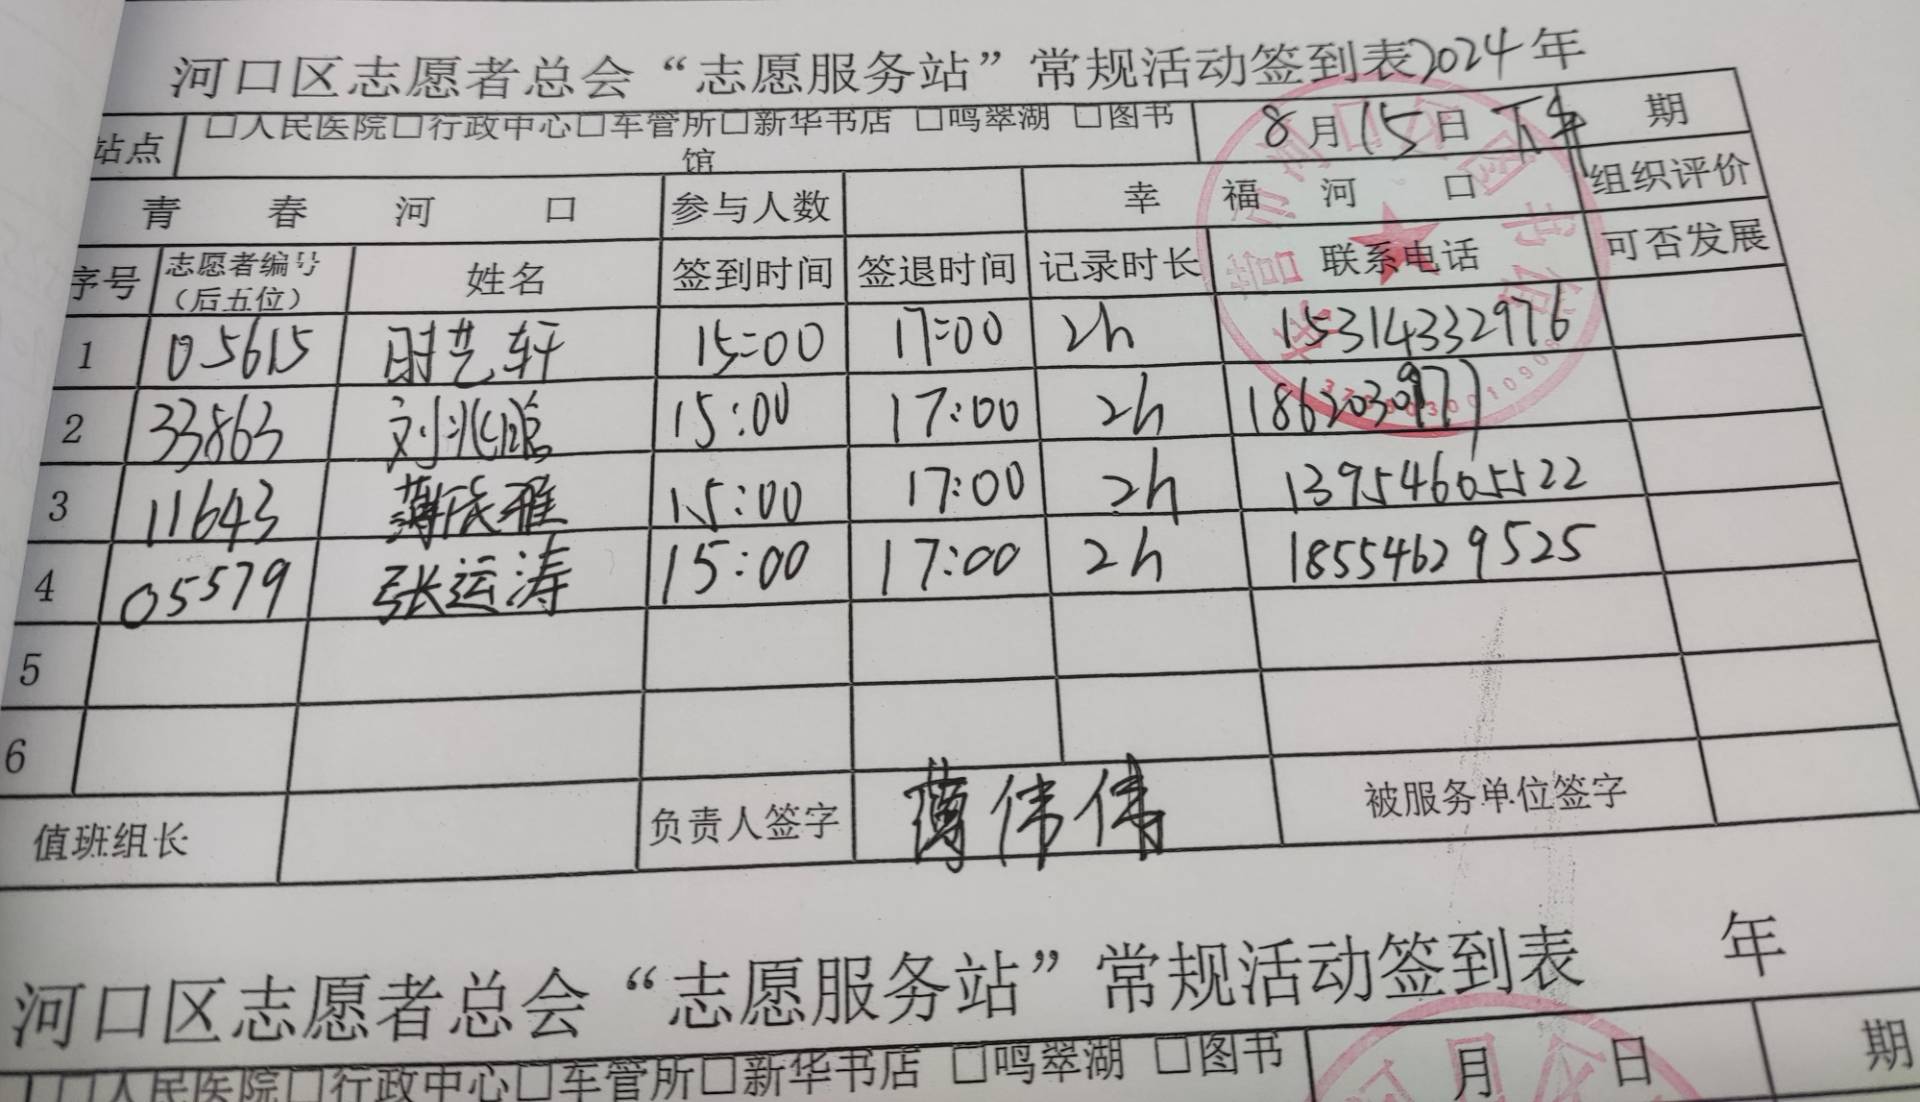 河口区志愿者总会“志愿服务站”常规活动签到表2024年
站点 □人民医院□行政中心□车管所□新华书店 □鸣翠湖 □图书馆 8月15日 下午 期
青春河口 参与人数 幸福河口 组织评价
序号 志愿者编号（后五位） 姓名 签到时间 签退时间 记录时长 联系电话 可否发展
1 05615 时艺轩 15:00 17:00 2h 15314332976
2 33863 刘兆 15:00 17:00 2h
3 11643 薄 雅 15:00 17:00 2h 13954605522
4 05579 张运涛 15:00 17:00 2h 18554629525
5
6
值班组长 负责人签字 薄伟伟 被服务单位签字
河口区志愿者总会“志愿服务站”常规活动签到表 年
□人民医院□行政中心□车管所□新华书店 □鸣翠湖 □图书 月 日 期